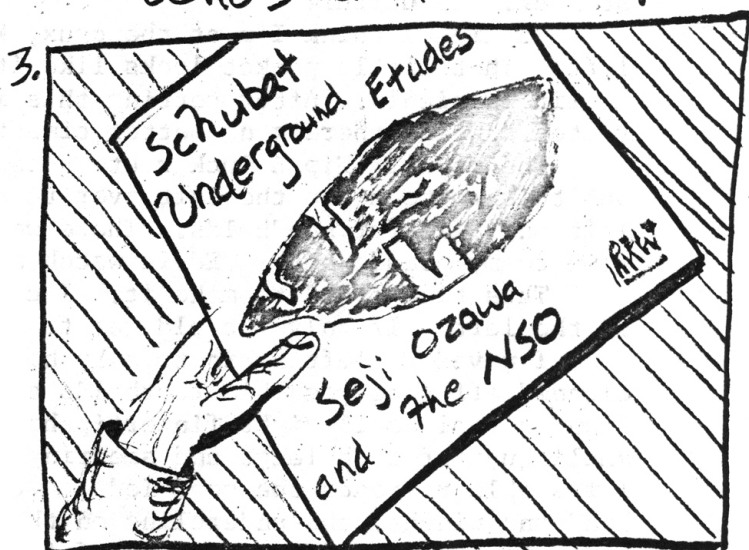 3.
Schubat
Underground Etudes
Seji Ozawa
and the NSO